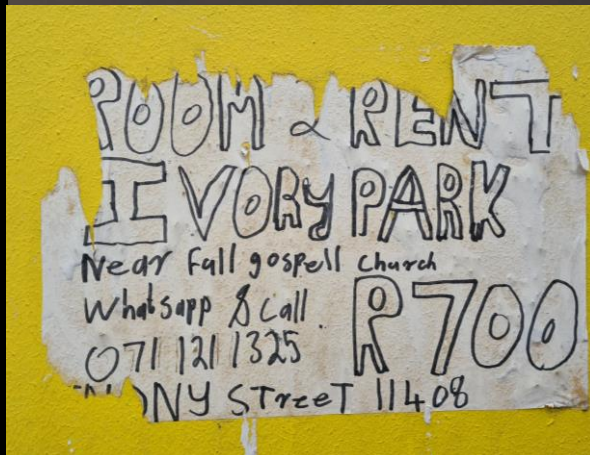 ROOM & RENT
IVORY PARK
Near Full gospell church
Whatsapp & Call
R700
071 121 1325
STreeT 11408